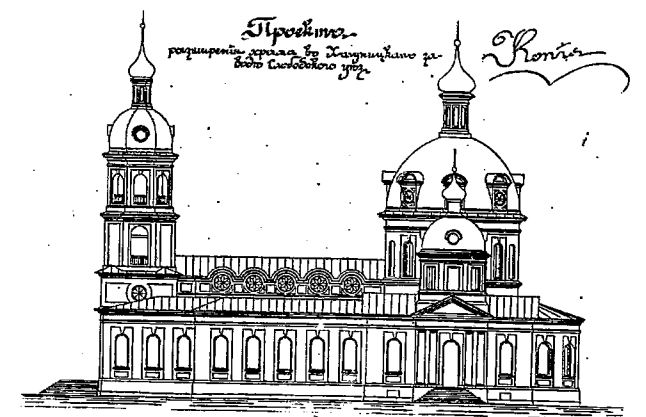 Проектъ
расширенія храма во Холуницкомъ за-
водѣ Слободского уѣз.
Копія